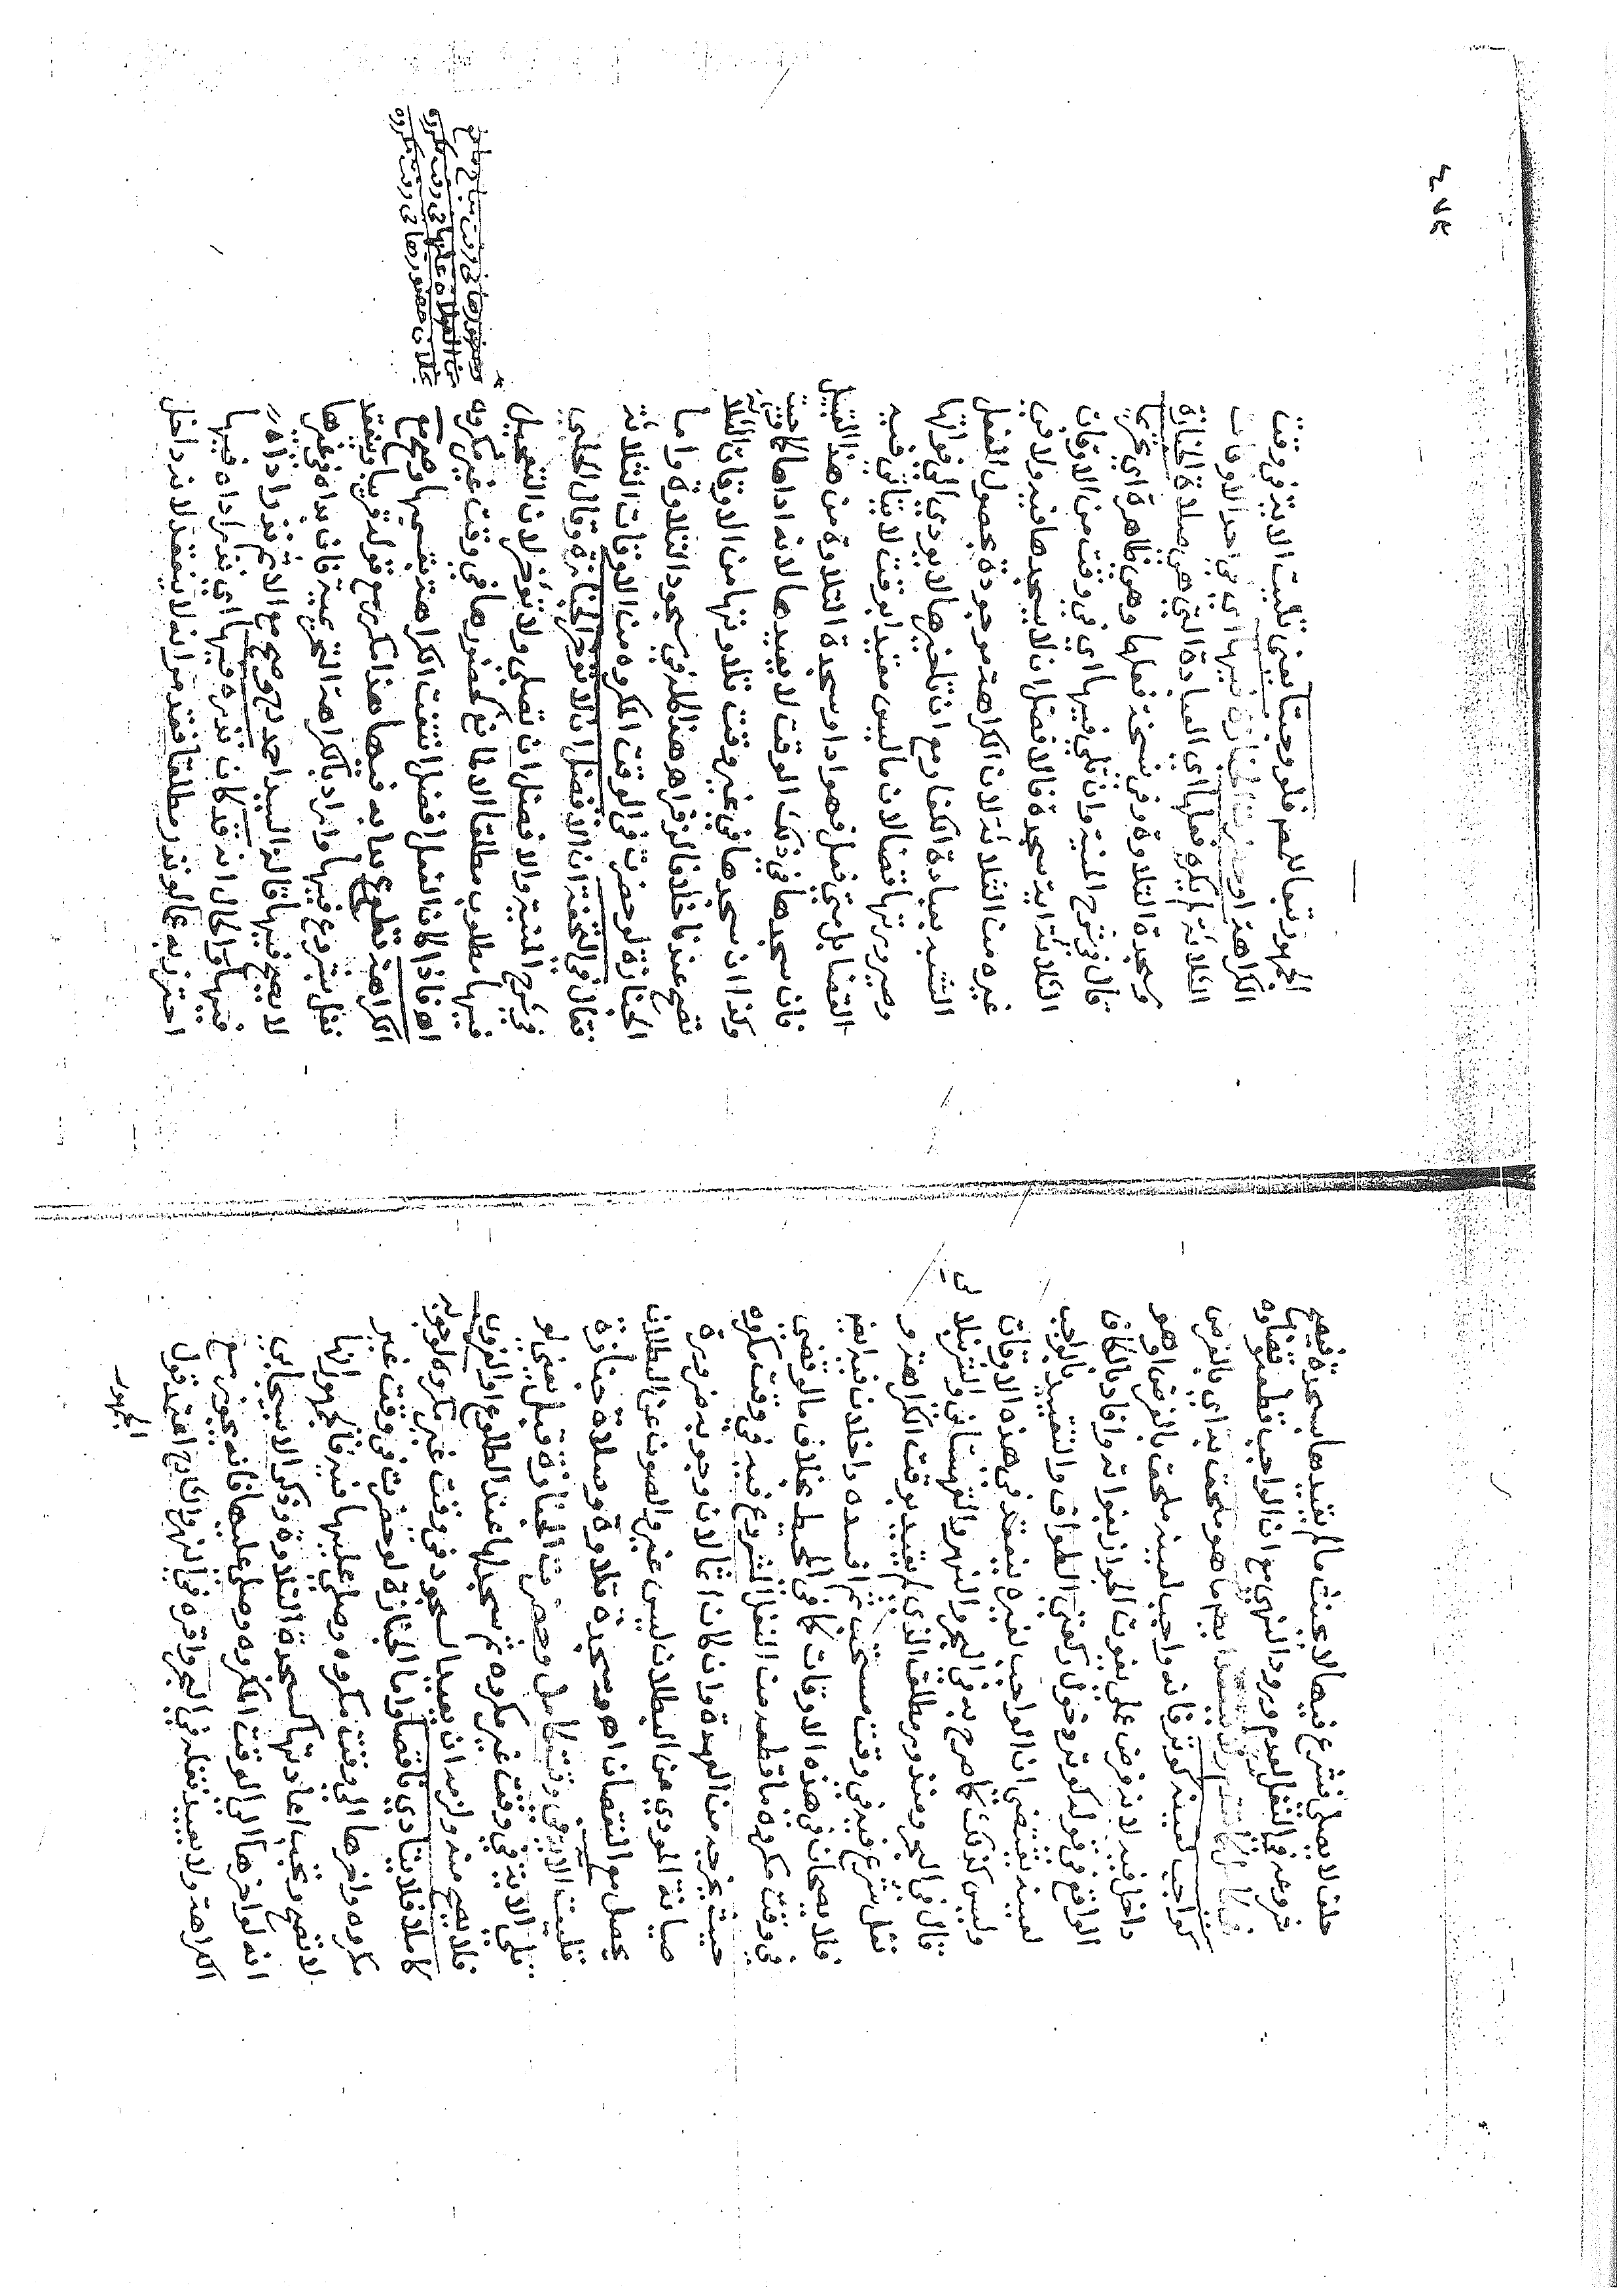 حلف لا يصلي فشرع فيها لا يحنث ما لم يقيدها بسجدة فيصح
شروعه في النفل لعدم ورود النهي مع ان الواجب قطعه وقضاوه
ايضا ما هو ملحق به اي بالفرض
كواجب لعينه كوتر فانه واجب لعينه ملحق بالفرض او هو
داخل فيه لانه فرض عملي يفوت الجواز بفواته وافاد بالكاف
الواقع في قوله كوتر دخول ركعتي الطواف والتقييد بالواجب
لعينه يقتضي ان الواجب لغيره ينعقد في هذه الاوقات
وليس كذلك كما صرح به في البحر والنهر والقهستاني والشرنبلا
قال في البحر ومنذور مطلق الذي لم يقيد بوقت الكراهة و
نفل شرع فيه في وقت مستحب ثم افسده داخلان فيه ايضا
فلا يصحان في هذه الاوقات كما في المحيط بخلاف ما لو قضى
في وقت مكروه ما قطعه من النفل الشروع فيه في وقت مكروه
حيث يخرجه من العهدة وان كان اثما لان وجوبه ضرورة
صيانة المودي عن البطلان ليس غير والصون عن البطلان
يحصل مع النقصان اهـ وسجدة تلاوة وصلاة جنازة
تليت الاية في وقت كامل وحضرت الجنازة قبل يعني لو
تلى الاية في وقت غير مكروه ثم سجد لها عند الطلوع او الغروب
فلا يصح منه ولزمه ان يعيد السجود في وقت غير مكروه لوجوبه
كاملا فلا يتادي ناقصا واما الجنازة لو حضرت في وقت غير
مكروه واخرها الى وقت مكروه وصلى عليها فيه فالجمهور انها
لا تصح وتجب اعادتها كسجدة التلاوة وذكر الاسبيجابي
انه لو اخرها الى الوقت المكروه وصلى عليها فانه يجوز مع
الكراهة ولا يعيد نقله في البحر واقره في النهر اعتمد قول
الجهور
الجهور تبعا فلو وجبتا يعني تليت الاية في وقت
الكراهة او حضرت الجنازة فيها اي في احد الاوقات
الثلاثة لم يكره فعلها اي العبادة التي هي صلاة الجنازة
وسجدة التلاوة وفي نسخة فعلهما وهي ظاهرة اي تحريما
قال في شرح المنية وان تلى فيها اي في وقت من الاوقات
الثلاثة اية سجدة فالافضل ان لا يسجدها فيه ولا في
غيره من الثلاثة لان الكراهة موجودة بحصول الفعل
الشبه بعبادة الكفار مع ان تاخيرها لا يودي الى فواتها
وصيرورتها قضا لان ما ليس مقيدا بوقت لا يتاتى فيه
القضا بل متى فعل فهو ادا وسجدة التلاوة من هذا القبيل
فان سجدها في ذلك الوقت لا يعيدها لانه اداها كما وجبت
وكذا ان سجدها في غير وقت تلاوتها من الاوقات الثلا
تصح عندنا خلافا لزفر اهـ هذا كله في سجود التلاوة واما
الجنازة لو حضرت في الوقت المكروه من الاوقات الثلاثة
فقال في التحفة ان الافضل ان لا تؤخر الجنازة وقال الحلبي
في شرح المنية والافضل ان تصلى ولا تؤخر لان التعجيل
فيها مطلوب مطلقا الا لمانع كحضورها في وقت غير مكروه
اهـ فاذا كان الفعل افضل انتفت الكراهة بقسميها وصح مع
الكراهة تطوع بدا به فيها هذا مكرر مع قوله قريبا وينعقد
نفل بشروع فيها واراد بالكراهة التحريمية فان بداه في غيرها
لا يصح فيها قاله السيد احمد وصح مع الاثم نذر اداؤه
فيها والحال انه قد كان نذره فيها اي نذر اداه فيها
احترز به عما لو نذر مطلقا فقد مر انه لا ينعقد لانه داخل
حضورها في وقت مباح مانع
من الصلاة عليها في وقت مكروه
بخلاف حضورها في وقت مكروه